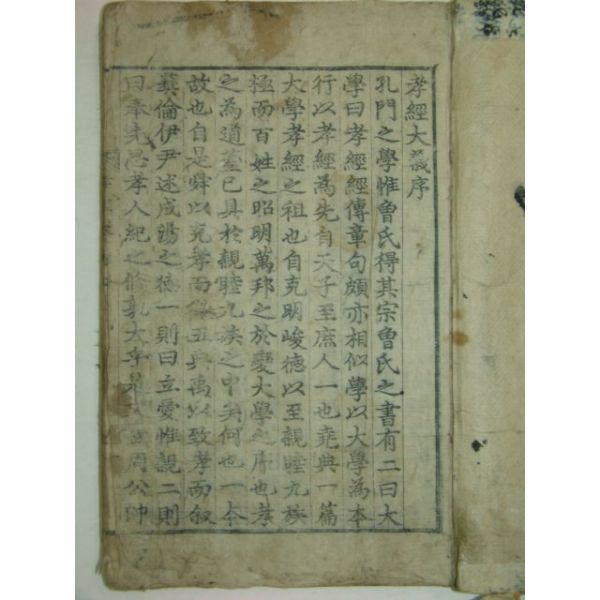 孝經大義序
孔門之學惟曾氏得其宗曾氏之書有二曰大
學曰孝經經傳章句頗亦相似學以大學為本
行以孝經為先自天子至庶人一也堯典一篇
大學孝經之祖也自克明峻德以至親睦九族
極而百姓之昭明萬邦之於變大學之序也孝
之為道蓋已具於親睦九族之中矣何也一本
故也自是舜以克孝而徽五典禹以致孝而叙
彝倫伊尹述成湯之德一則曰立愛惟親二則
曰奉先思孝人紀之修孰大乎是 周公帥